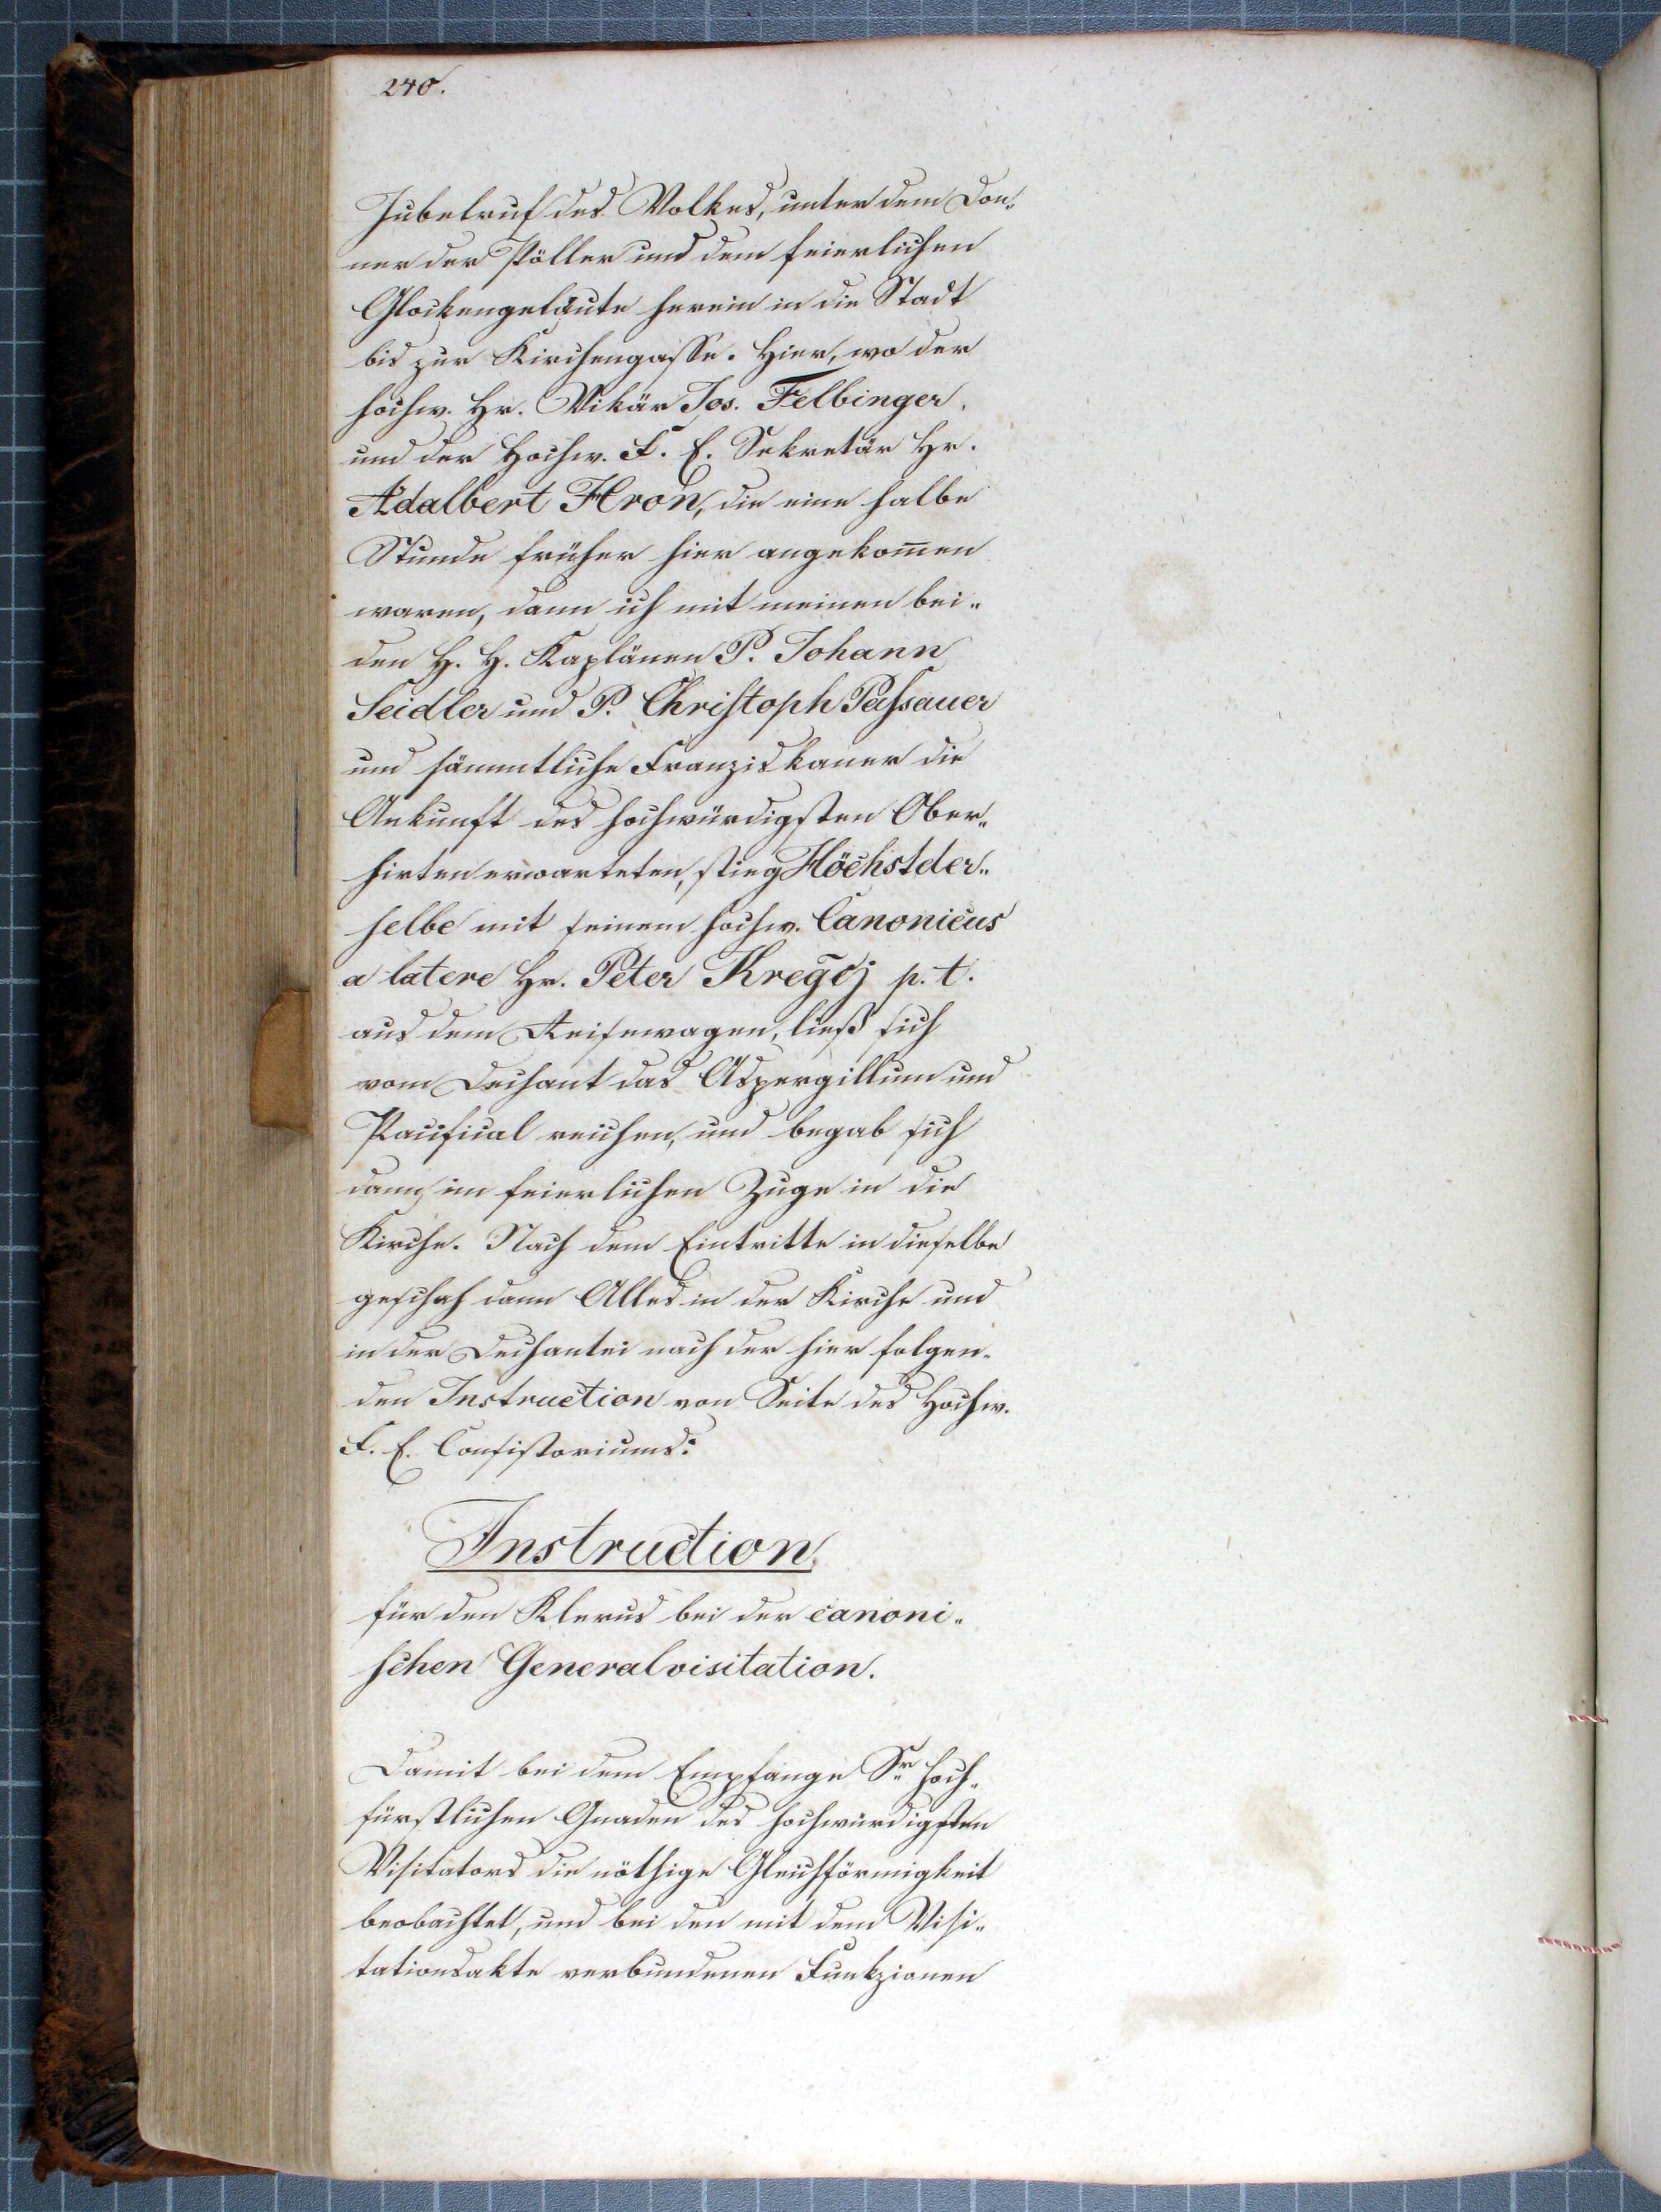 240.
Jubelruf des Volkes, unter dem Don„
ner der Pöller und dem feierlichen
Glockengeläute herein in die Stadt
bis zur Kirchengasse. Hier, wo der
hochw. Hr. Vikär Jos. Felbinger,
und der Hochw. F. E. Sekretär Hr.
Adalbert Hron, die eine halbe
Stunde früher hier angekom̄en
waren, dann ich mit meinen bei„
den H. H. Kaplänen P. Johann
Seidler und P. Christoph Passauer
und sämmtliche Franziskaner die
Ankunft des hochwürdigsten Ober„
hirten erwarteten, stieg Höchstder„
selbe mit seinem hochw. Canonicus
a latere Hr. Peter Krejčj p. t.
aus dem Reisewagen, ließ sich
vom Dechant das Aspergillum und
Pacifical reichen, und begab sich
dann im feierlichen Zuge in die
Kirche. Nach dem Eintritte in dieselbe
geschah dann Alles in der Kirche und
in der Dechantei nach der hier folgen„
den Instruction von Seite des Hochw.
F. E. Consistoriums:
Instruction
für den Klerus bei der canoni„
schen Generalvisitation.
Damit bei dem Empfange Sr hoch„
fürstlichen Gnaden des hochwürdigsten
Visitators die nöthige Gleichförmigkeit
beobachtet, und bei den mit dem Visi„
tationsakte verbundenen Funkzionen